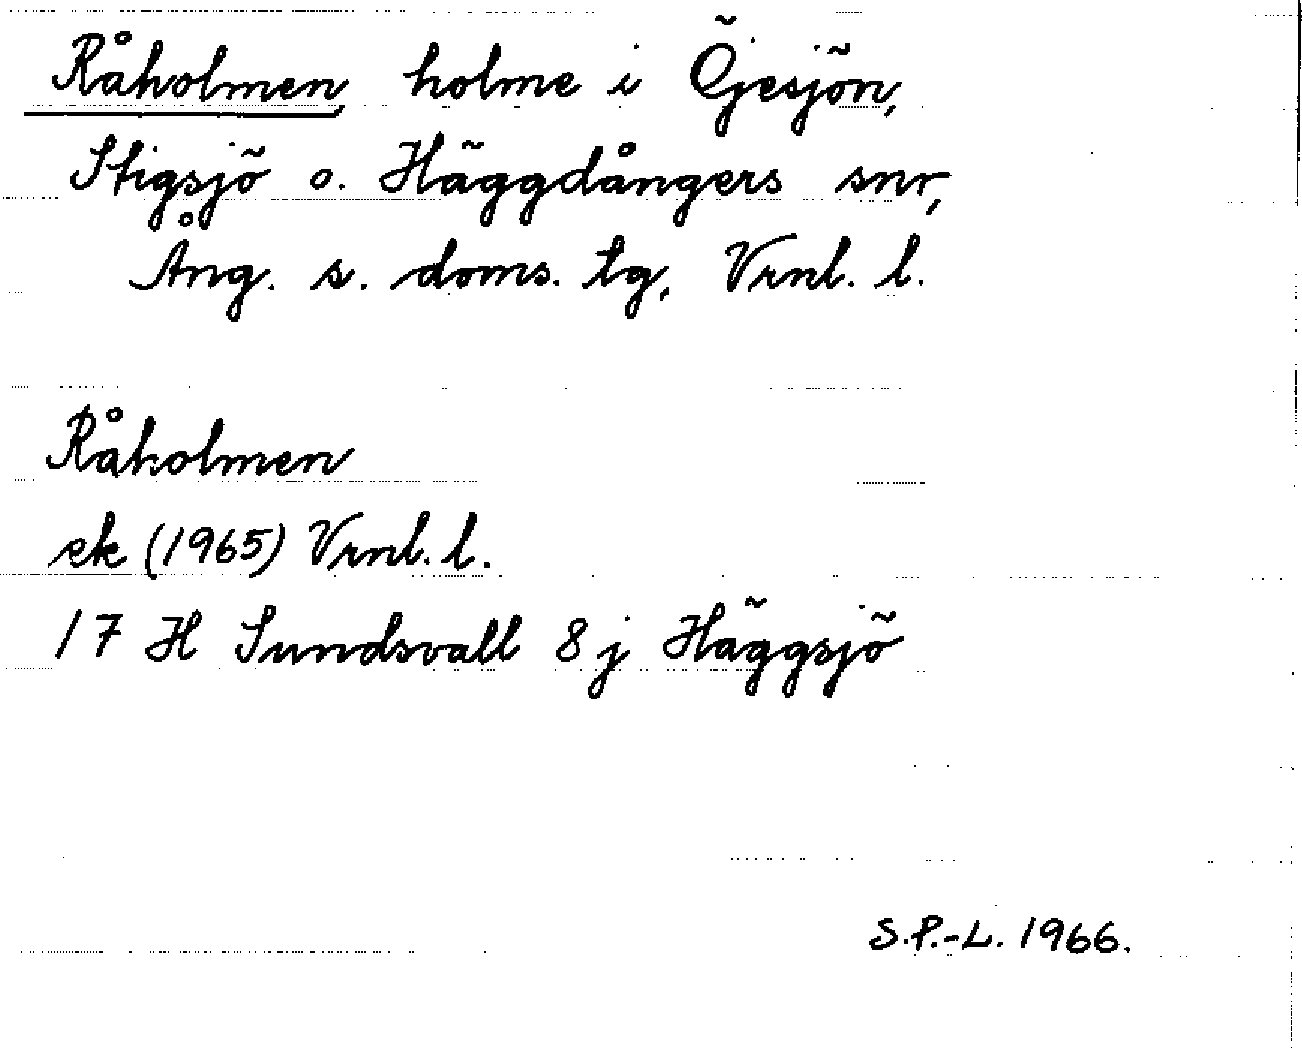 Råholmen, holme i Öjesjön,
Stigsjö o. Häggdångers snr,
Ång. s. doms. tg, Vrnl. l.
Råholmen
ek (1965) Vrnl. l.
17 H Sundsvall 8 j Häggsjö
S.P.-L. 1966.